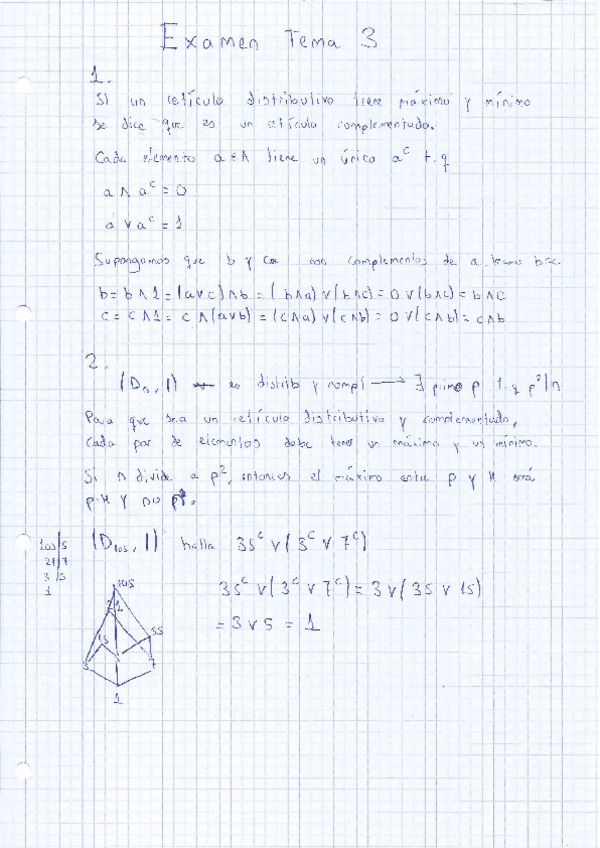 Examen Tema 3
1.
Si un retículo distributivo tiene máximo y mínimo
se dice que es un retículo complementado.
Cada elemento a∈A tiene un único aᶜ t.q
a ∧ aᶜ = 0
a ∨ aᶜ = 1
Supongamos que b y c son complementos de a, veamos b=c.
b = b∧1 = (a∨c)∧b = (b∧a)∨(b∧c) = 0∨(b∧c) = b∧c
c = c∧1 = c∧(a∨b) = (c∧a)∨(c∧b) = 0∨(c∧b) = c∧b
2.
(Dₙ, |) es distrib y compl → ∃ primo p t.q p²|n
Para que sea un retículo distributivo y complementado,
cada par de elementos debe tener un máximo y un mínimo.
Si n divide a p², entonces el máximo entre p y será
p· y no p².
105|5
21|7
3|
1
(D₁₀₅, |) halla 35ᶜ ∨ (3ᶜ ∨ 7ᶜ)
35ᶜ ∨ (3ᶜ ∨ 7ᶜ) = 3 ∨ (35 ∨ 15)
= 3 ∨ 5 = 1
105
21
15
3
7
1